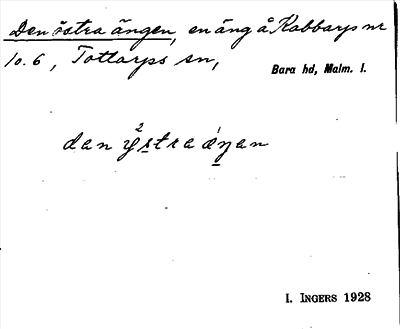 Den östra ängen, en äng å Kabbarps nr
10.6, Tottarps sn,
Bara hd, Malm. l.
dan ÿ²stra æ̀ŋan
I. INGERS 1928